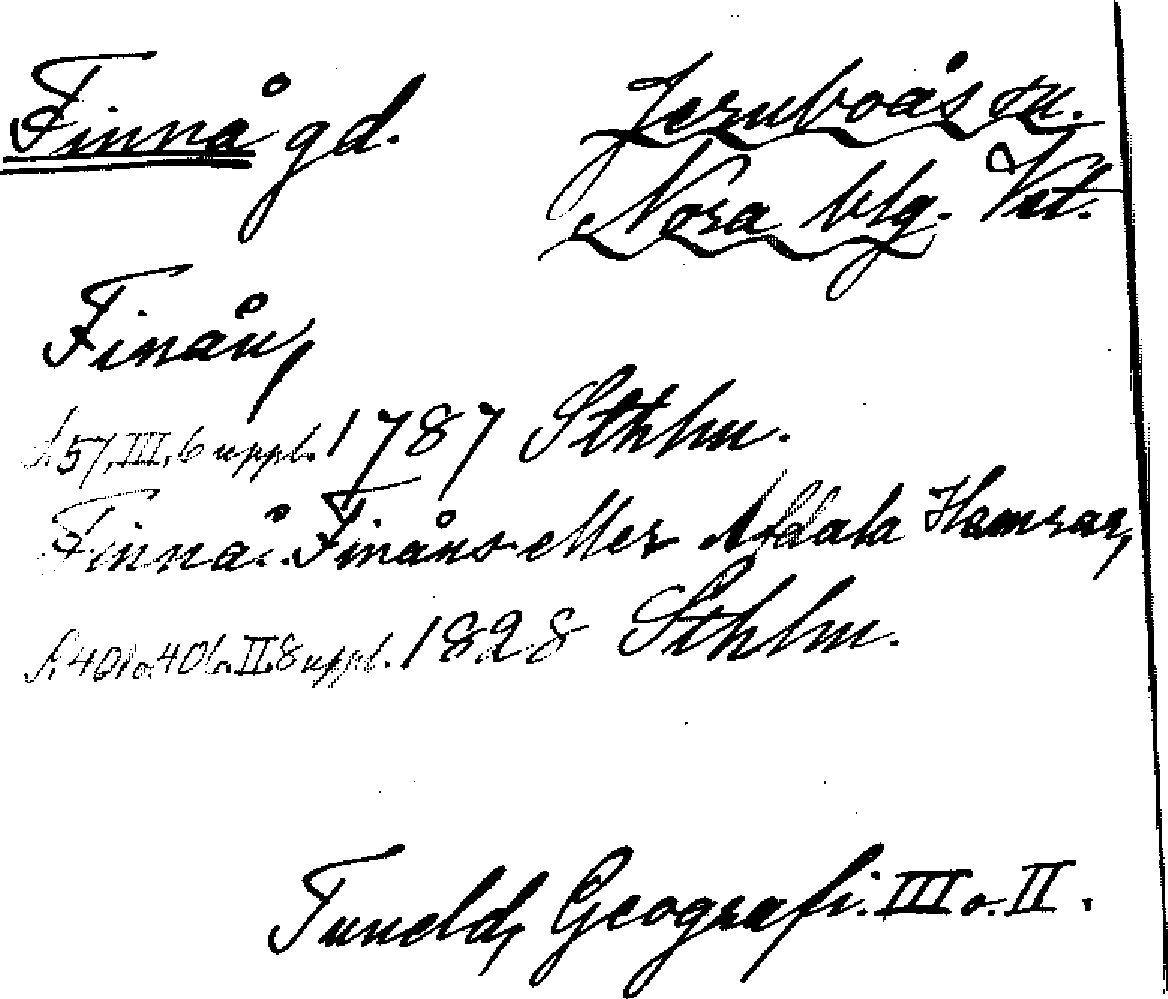 Finnå gd. Jernboås sn.
Nora blg. Vstm.
Finån,
S. 57, III, 6 uppl. 1787 Sthlm.
Finnå. Finåns eller Afdala Hamrar,
S. 401 o. 406. II. 8 uppl. 1828 Sthlm.
Tuneld, Geografi. III o. II.